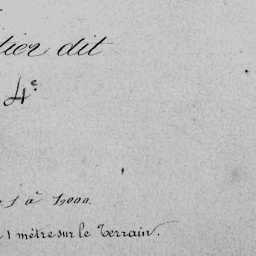 tier dit
4e
1 à 1,000.
1 mètre sur le Terrain.